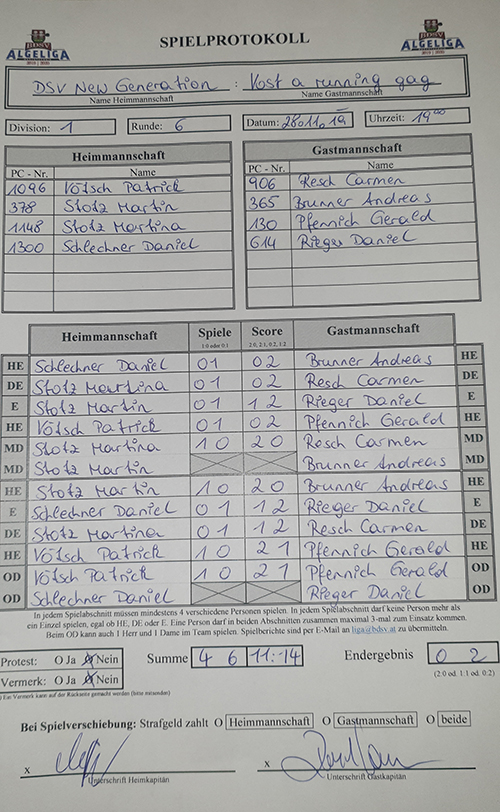 BDSV
ALGELIGA
2019 | 2020
SPIELPROTOKOLL
BDSV
ALGELIGA
2019 | 2020
DSV New Generation : Kost a running gag
Name Heimmannschaft Name Gastmannschaft
Division: 1 Runde: 6 Datum: 28.11.19 Uhrzeit: 19:00
Heimmannschaft Gastmannschaft
PC - Nr. Name PC - Nr. Name
1096 Vötsch Patrick 906 Resch Carmen
378 Stotz Martin 365 Brunner Andreas
1148 Stotz Martina 130 Pfennich Gerald
1300 Schlechner Daniel 614 Rieger Daniel
Heimmannschaft Spiele Score Gastmannschaft
1:0 oder 0:1 2:0, 2:1, 0:2, 1:2
HE Schlechner Daniel 0 1 0 2 Brunner Andreas HE
DE Stotz Martina 0 1 0 2 Resch Carmen DE
E Stotz Martin 0 1 1 2 Rieger Daniel E
HE Vötsch Patrick 0 1 0 2 Pfennich Gerald HE
MD Stotz Martina 1 0 2 0 Resch Carmen MD
MD Stotz Martin Brunner Andreas MD
HE Stotz Martin 1 0 2 0 Brunner Andreas HE
E Schlechner Daniel 0 1 1 2 Rieger Daniel E
DE Stotz Martina 0 1 1 2 Resch Carmen DE
HE Vötsch Patrick 1 0 2 1 Pfennich Gerald HE
OD Vötsch Patrick 1 0 2 1 Pfennich Gerald OD
OD Schlechner Daniel Rieger Daniel OD
In jedem Spielabschnitt müssen mindestens 4 verschiedene Personen spielen. In jedem Spielabschnitt darf keine Person mehr als
ein Einzel spielen, egal ob HE, DE oder E. Eine Person darf in beiden Abschnitten zusammen maximal 3-mal zum Einsatz kommen.
Beim OD kann auch 1 Herr und 1 Dame im Team spielen. Spielberichte sind per E-Mail an liga@bdsv.at zu übermitteln.
Protest: O Ja O Nein Summe 4 6 11:14 Endergebnis 0 2
Vermerk: O Ja O Nein (2:0 od. 1:1 od. 0:2)
Ein Vermerk kann auf der Rückseite gemacht werden (bitte mitsenden)
Bei Spielverschiebung: Strafgeld zahlt O Heimmannschaft O Gastmannschaft O beide
x x
Unterschrift Heimkapitän Unterschrift Gastkapitän